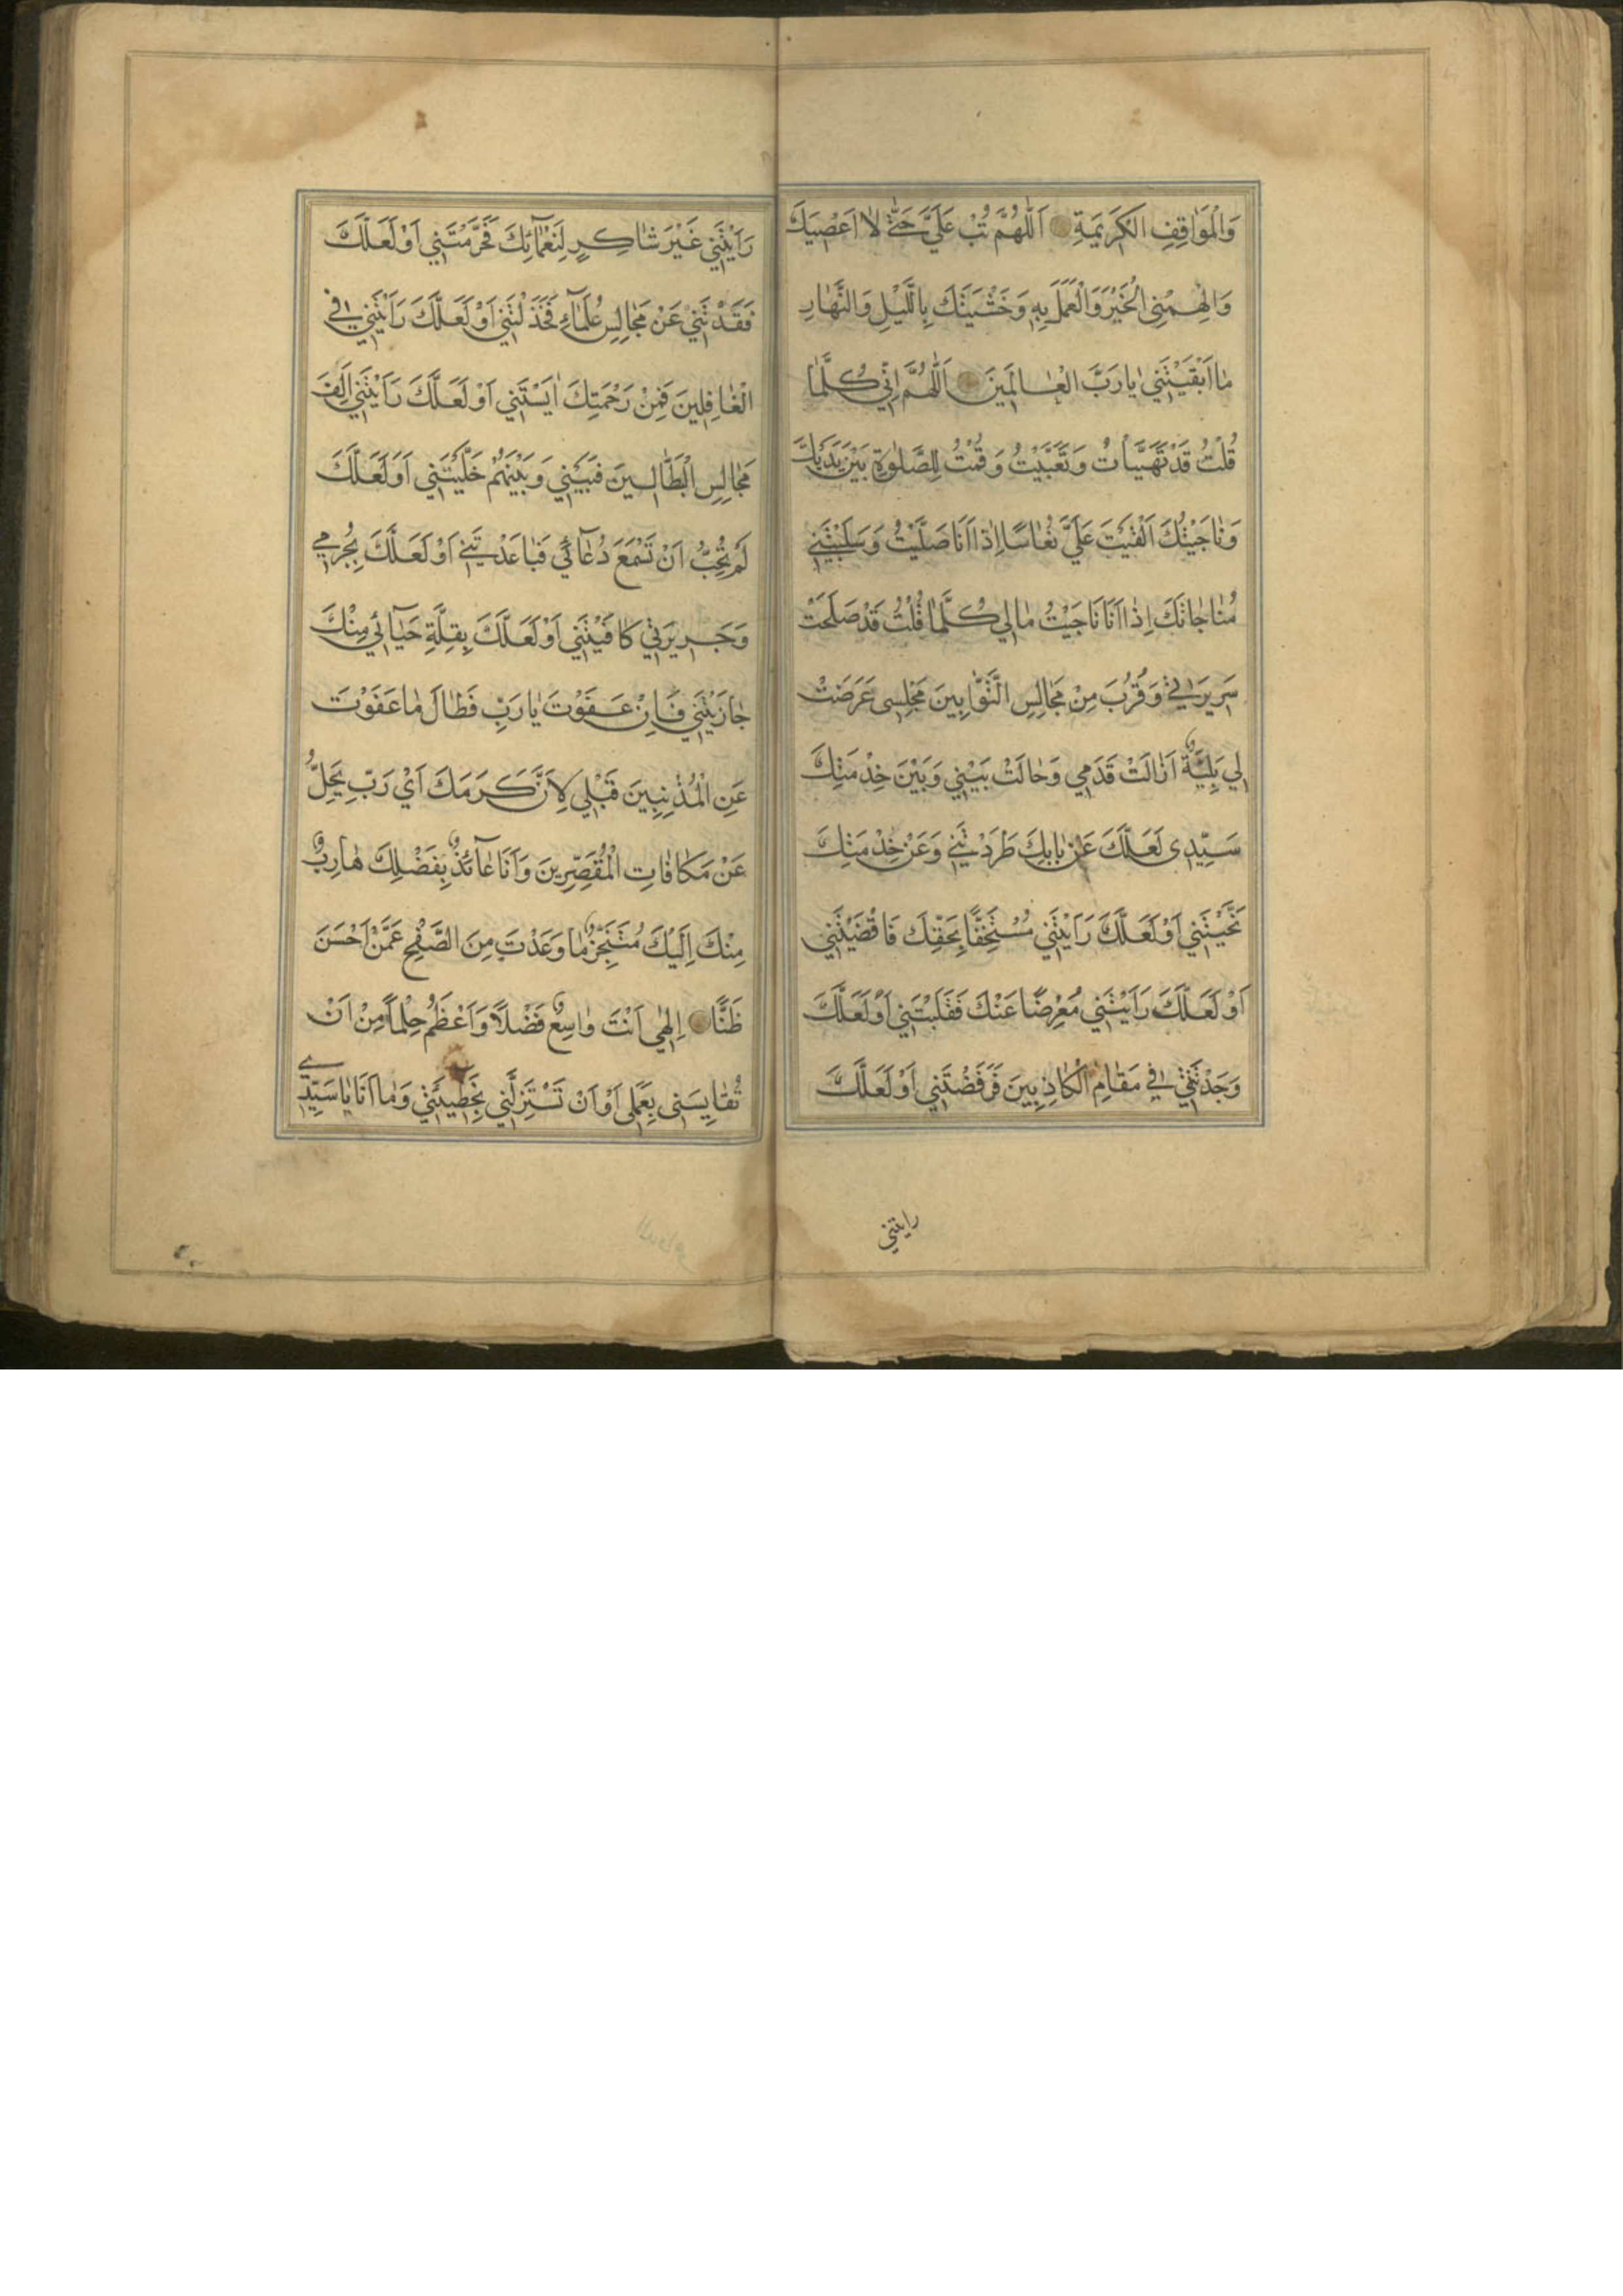 وَالْمَوٰاقِفِ الْكَرِيمَةِ اَللّٰهُمَّ تُبْ عَلَيَّ حَتّٰى لاٰ اَعْصِيَكَ
وَاَلْهِمْنِى الْخَيْرَ وَالْعَمَلَ بِهِ وَخَشْيَتَكَ بِاللَّيْلِ وَالنَّهٰارِ
مٰا اَبْقَيْتَنِي يٰا رَبَّ الْعٰالَمِينَ اَللّٰهُمَّ اِنِّي كُلَّمٰا
قُلْتُ قَدْ تَهَيَّأْتُ وَتَعَبَّيْتُ وَقُمْتُ لِلصَّلوٰةِ بَيْنَ يَدَيْكَ
وَنٰاجَيْتُكَ اَلْقَيْتَ عَلَيَّ نُعٰاسًا اِذٰا اَنَا صَلَّيْتُ وَسَلَبْتَنِي
مُنٰاجٰاتَكَ اِذٰا اَنَا نَاجَيْتُ مٰالِي كُلَّمٰا قُلْتُ قَدْ صَلَحَتْ
سَرِيرَتِي وَقَرُبَ مِنْ مَجٰالِسِ التَّوّٰابِينَ مَجْلِسِى عَرَضَتْ
لِي بَلِيَّةٌ اَزٰالَتْ قَدَمِي وَحٰالَتْ بَيْنِي وَبَيْنَ خِدْمَتِكَ
سَيِّدِى لَعَلَّكَ عَنْ بٰابِكَ طَرَدْتَنِي وَعَنْ خِدْمَتِكَ
نَحَّيْتَنِي اَوْ لَعَلَّكَ رَاَيْتَنِي مُسْتَخِفًّا بِحَقِّكَ فَاَقْصَيْتَنِي
اَوْ لَعَلَّكَ رَاَيْتَنِي مُعْرِضًا عَنْكَ فَقَلَبْتَنِي اَوْ لَعَلَّكَ
وَجَدْتَنِي فِي مَقٰامِ الْكٰاذِبِينَ فَرَفَضْتَنِي اَوْ لَعَلَّكَ
رايتني
رَاَيْتَنِي غَيْرَ شٰاكِرٍ لِنَعْمٰآئِكَ فَحَرَمْتَنِي اَوْ لَعَلَّكَ
فَقَدْتَنِي عَنْ مَجٰالِسِ عُلَمٰآءِ فَخَذَلْتَنِي اَوْ لَعَلَّكَ رَاَيْتَنِي فِي
الْغٰافِلِينَ فَمِنْ رَحْمَتِكَ اٰيَسْتَنِي اَوْ لَعَلَّكَ رَاَيْتَنِي اٰلِفَ
مَجٰالِسِ الْبَطّٰالِينَ فَبَيْنِي وَبَيْنَهُمْ خَلَّيْتَنِي اَوْ لَعَلَّكَ
لَمْ تُحِبَّ اَنْ تَسْمَعَ دُعٰآئِي فَبٰاعَدْتَنِي اَوْ لَعَلَّكَ بِجُرْمِي
وَجَرِيرَتِي كَافَيْتَنِي اَوْ لَعَلَّكَ بِقِلَّةِ حَيٰآئِي مِنْكَ
جٰازَيْتَنِي فَاِنْ عَفَوْتَ يٰا رَبِّ فَطٰالَ مٰا عَفَوْتَ
عَنِ الْمُذْنِبِينَ قَبْلِي لِاَنَّ كَرَمَكَ اَيْ رَبِّ يَجِلُّ
عَنْ مَكٰافٰاتِ الْمُقَصِّرِينَ وَاَنَا عٰآئِذٌ بِفَضْلِكَ هٰارِبٌ
مِنْكَ اِلَيْكَ مُتَنَجِّزٌ مٰا وَعَدْتَ مِنَ الصَّفْحِ عَمَّنْ اَحْسَنَ
ظَنًّا اِلٰهِي اَنْتَ وٰاسِعٌ فَضْلًا وَاَعْظَمُ حِلْمًا مِنْ اَنْ
تُقٰايِسَنِى بِعَمَلِى اَوْ اَنْ تَسْتَزِلَّنِي بِخَطِيئَتِي وَمٰا اَنَا يٰا سَيِّدِي